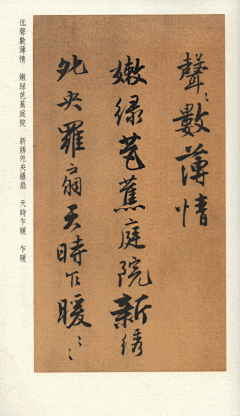 聲〻數薄情
嫩綠芭蕉庭院新綉
夗央羅扇天時乍暖〻〻
低聲數薄情　嫩綠芭蕉庭院　新綉夗央羅扇　天時乍暖　乍暖